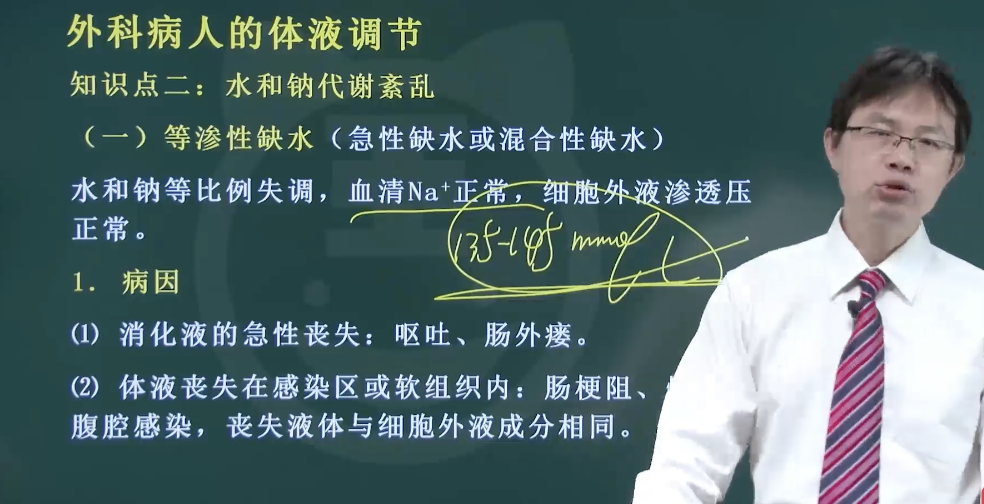 外科病人的体液调节
知识点二：水和钠代谢紊乱
（一）等渗性缺水（急性缺水或混合性缺水）
水和钠等比例失调，血清Na⁺正常，细胞外液渗透压
正常。
135-145 mmol/L
1. 病因
⑴ 消化液的急性丧失：呕吐、肠外瘘。
⑵ 体液丧失在感染区或软组织内：肠梗阻、
腹腔感染，丧失液体与细胞外液成分相同。